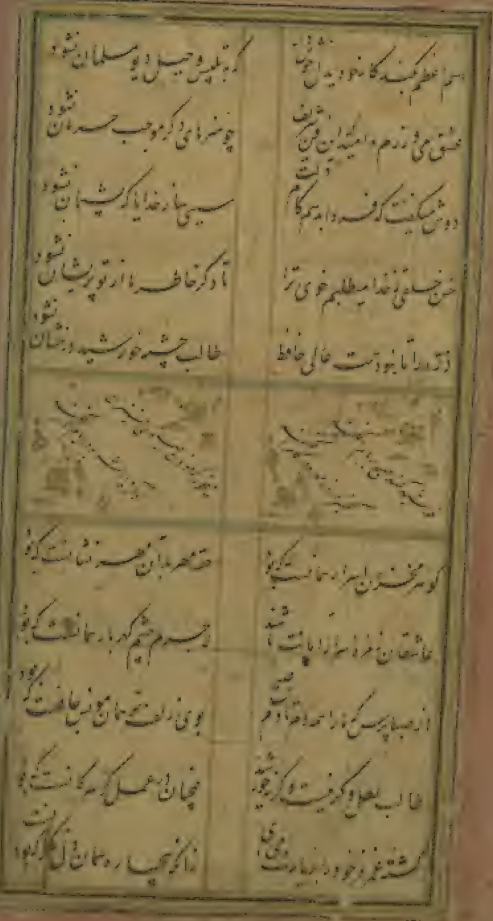 اسم اعظم بکند کار خود ای دل خوش باش که بتلبیس و حیل دیو مسلمان نشود
عشق می‌ورزم و امید که این فن شریف چون هنرهای دگر موجب حرمان نشود
دوش میگفت که فردا بدهم کام دلت سببی ساز خدایا که پشیمان نشود
حسن خلقی ز خدا میطلبم خوی ترا تا دگر خاطر ما از تو پریشان نشود
ذره را تا نبود همت عالی حافظ طالب چشمه خورشید درخشان نشود
گوهر مخزن اسرار همانست که بود حقه مهر بدان مهر و نشانست که بود
عاشقان زمره ارباب امانت باشند لاجرم چشم گهربار همانست که بود
از صبا پرس که ما را همه شب تا دم صبح بوی زلف تو همان مونس جانست که بود
طالب لعل و گهر نیست وگرنه خورشید همچنان در عمل کانست که بود
کشته غمزه خود را بزیارت دریاب زانکه بیچاره همان دل نگرانست که بود